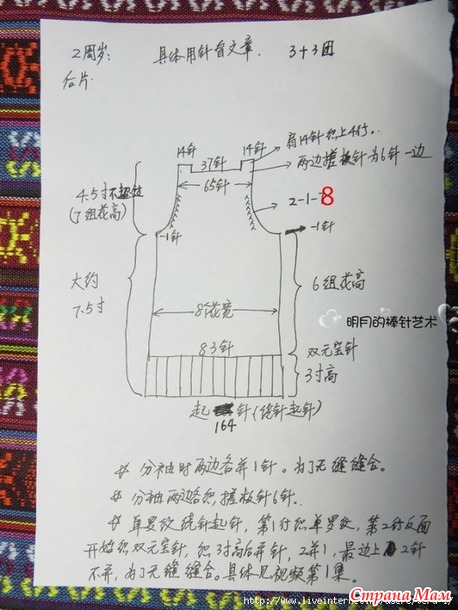 2周岁: 具体用针看文章. 3+3团
后片.
14针 14针 肩14针织上4行.
37针 两边搓板针为6针一边
4.5寸不起边 65针
(7组花高) 2-1-8
-1针 -1针
大约 6组花高
7.5寸
明月的棒针艺术
8个花宽
83针 双元宝针
3寸高
起 针(绕针起针)
164
* 分袖时两边各并1针. 为了无缝缝合.
* 分袖两边各织搓板针6针.
* 单罗纹绕针起针, 第1行织单罗纹, 第2行反面
开始织双元宝针, 织3寸高后并针, 2并1, 最边上2针
不并, 为了无缝缝合. 具体见视频第1集.
Страна Мам